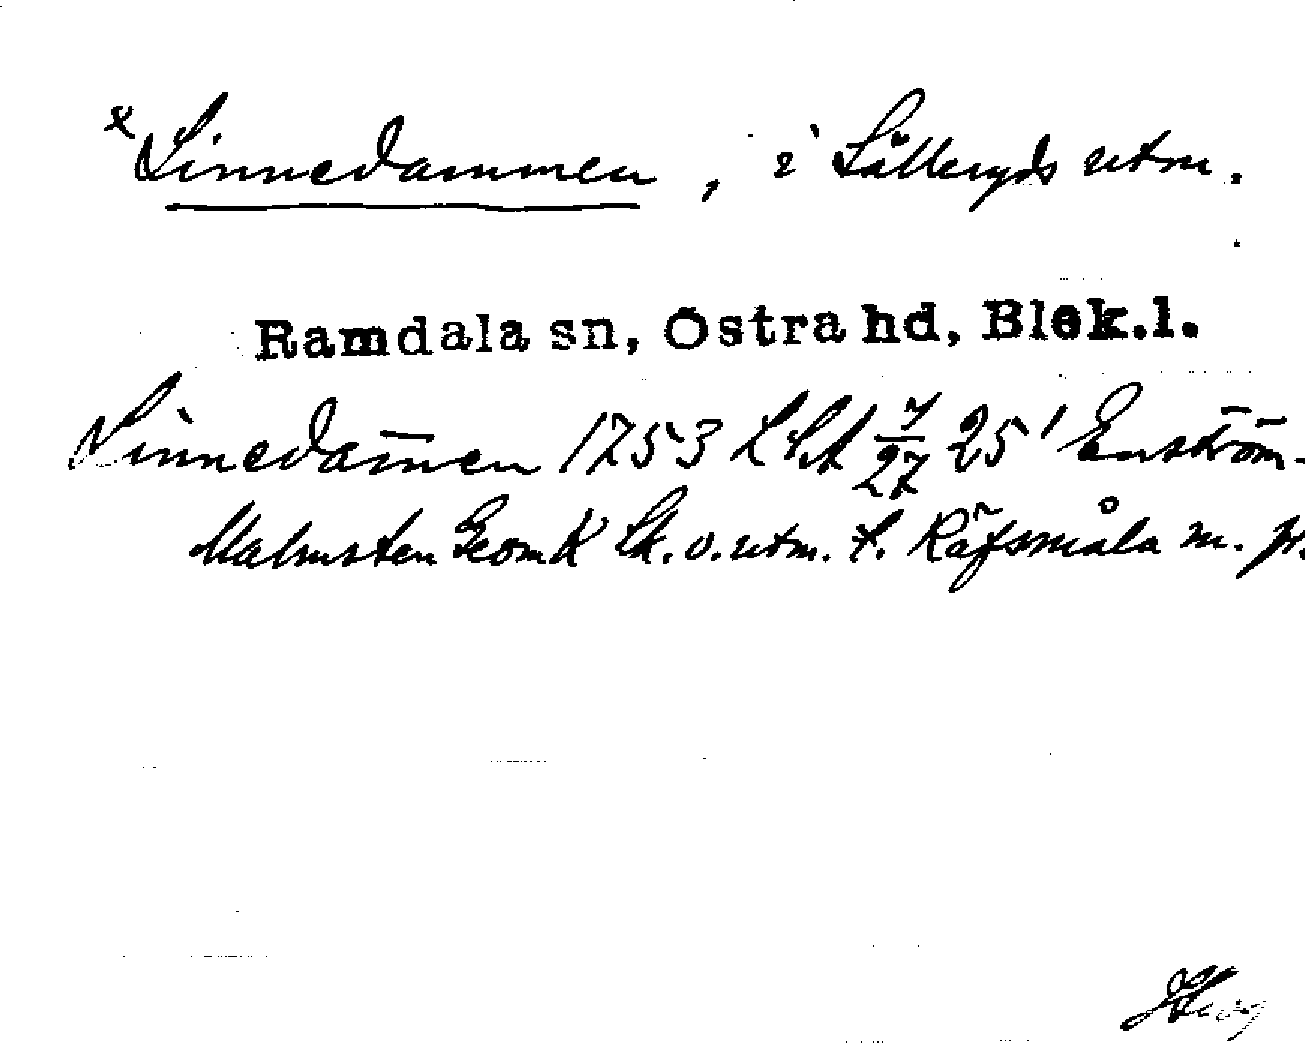 x Linnedammen, i Sälleryds utm.
Ramdala sn, Östra hd, Blek.l.
Linnedam̄en 1753 LSA 7/27 25' Enström-
Malmsten GeomK Sk. o. utm. t. Räfsmåla m. fl.